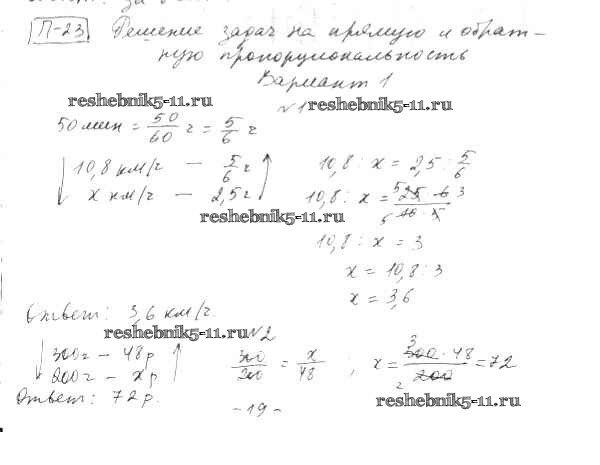 П-23 Решение задач на прямую и обрат-
ную пропорциональность
Вариант 1
reshebnik5-11.ru
№1 reshebnik5-11.ru
50 мин = 50/60 ч = 5/6 ч
↓ 10,8 км/ч — 5/6 ч ↑
↓ x км/ч — 2,5 ч ↑
reshebnik5-11.ru
10,8 : x = 2,5 : 5/6
10,8 : x = 25 · 6 / 10 · 5
10,8 : x = 3
x = 10,8 : 3
x = 3,6
Ответ: 3,6 км/ч.
reshebnik5-11.ru №2
↓ 300 г — 48 р ↑
↓ 200 г — x р
300/200 = x/48 ; x = 300 · 48 / 200 = 72
Ответ: 72 р.
reshebnik5-11.ru
- 19 -